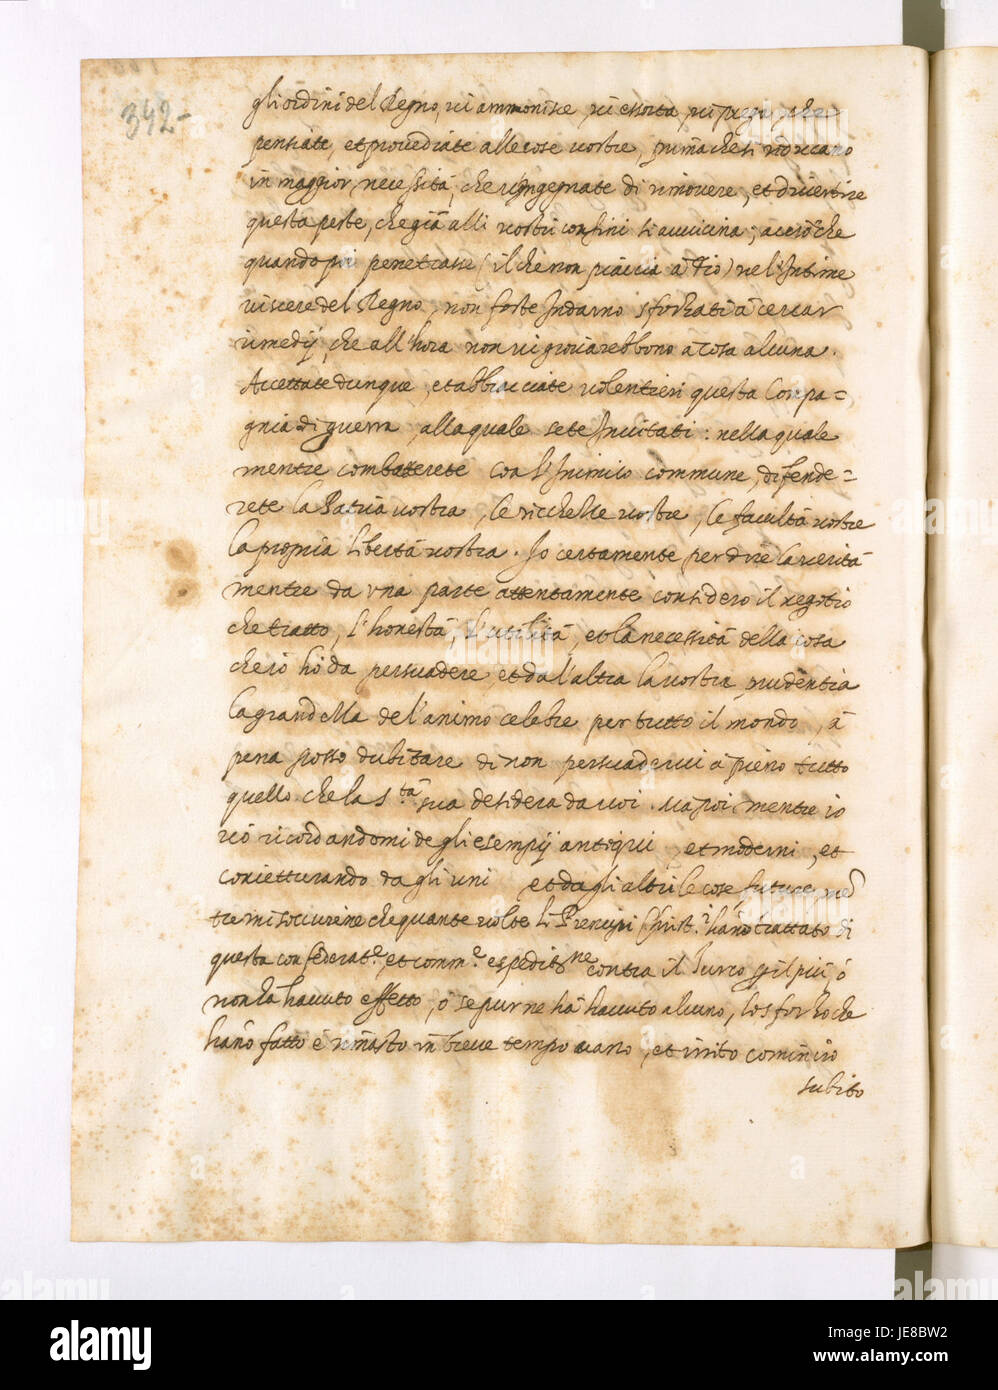 342-
gli ordini del Regno, vi ammonisce, vi essorta, vi prega che
pensiate, et provediate alle cose vostre, prima che si riduccano
in maggior necessità, che v'ingegnate di rimovere, et divertire
questa peste, che già alli vostri confini si avvicina; acciò che
quando poi penetrasse (il che non piaccia à Dio) nel'Intime
viscere del Regno, non foste Indarno sforzati à cercar
rimedij, che all'hora non vi giovarebbono a cosa alcuna.
Accettate dunque, et abbracciate volentieri questa Compa=
gnia di guerra, alla quale sete Invitati: nella quale
mentre combatterete con l'Inimico commune, difende=
rete la Patria vostra, le ricchezze vostre, le facultà vostre
la propria libertà vostra. Io certamente per dire la verità
mentre da una parte attentamente considero il negotio
che tratto, l'honestà, l'utilità, et la necessità della cosa
che io hò da persuadere, et da l'altra la vostra prudentia
la grandezza del'animo celebre per tutto il mondo, à
pena posso dubitare di non persuadervi à pieno tutto
quello che la S.tà sua desidera da voi. Ma poi mentre io
vò ricordandomi de gli esempij antiqui, et moderni, et
conietturando da gli uni et da gli altri le cose future,
mi soccurrene che quante volte li Prencipi Christ.i hano trattato di
questa confederat.e, et comm.e espedit.ne contra il Turco ò
non ha havuto effetto, ò se pur ne hà havuto alcuno, lo sforzo che
hano fatto è rimasto in breve tempo vano, et irrito cominciò
subito
alamy
JE8BW2
www.alamy.com